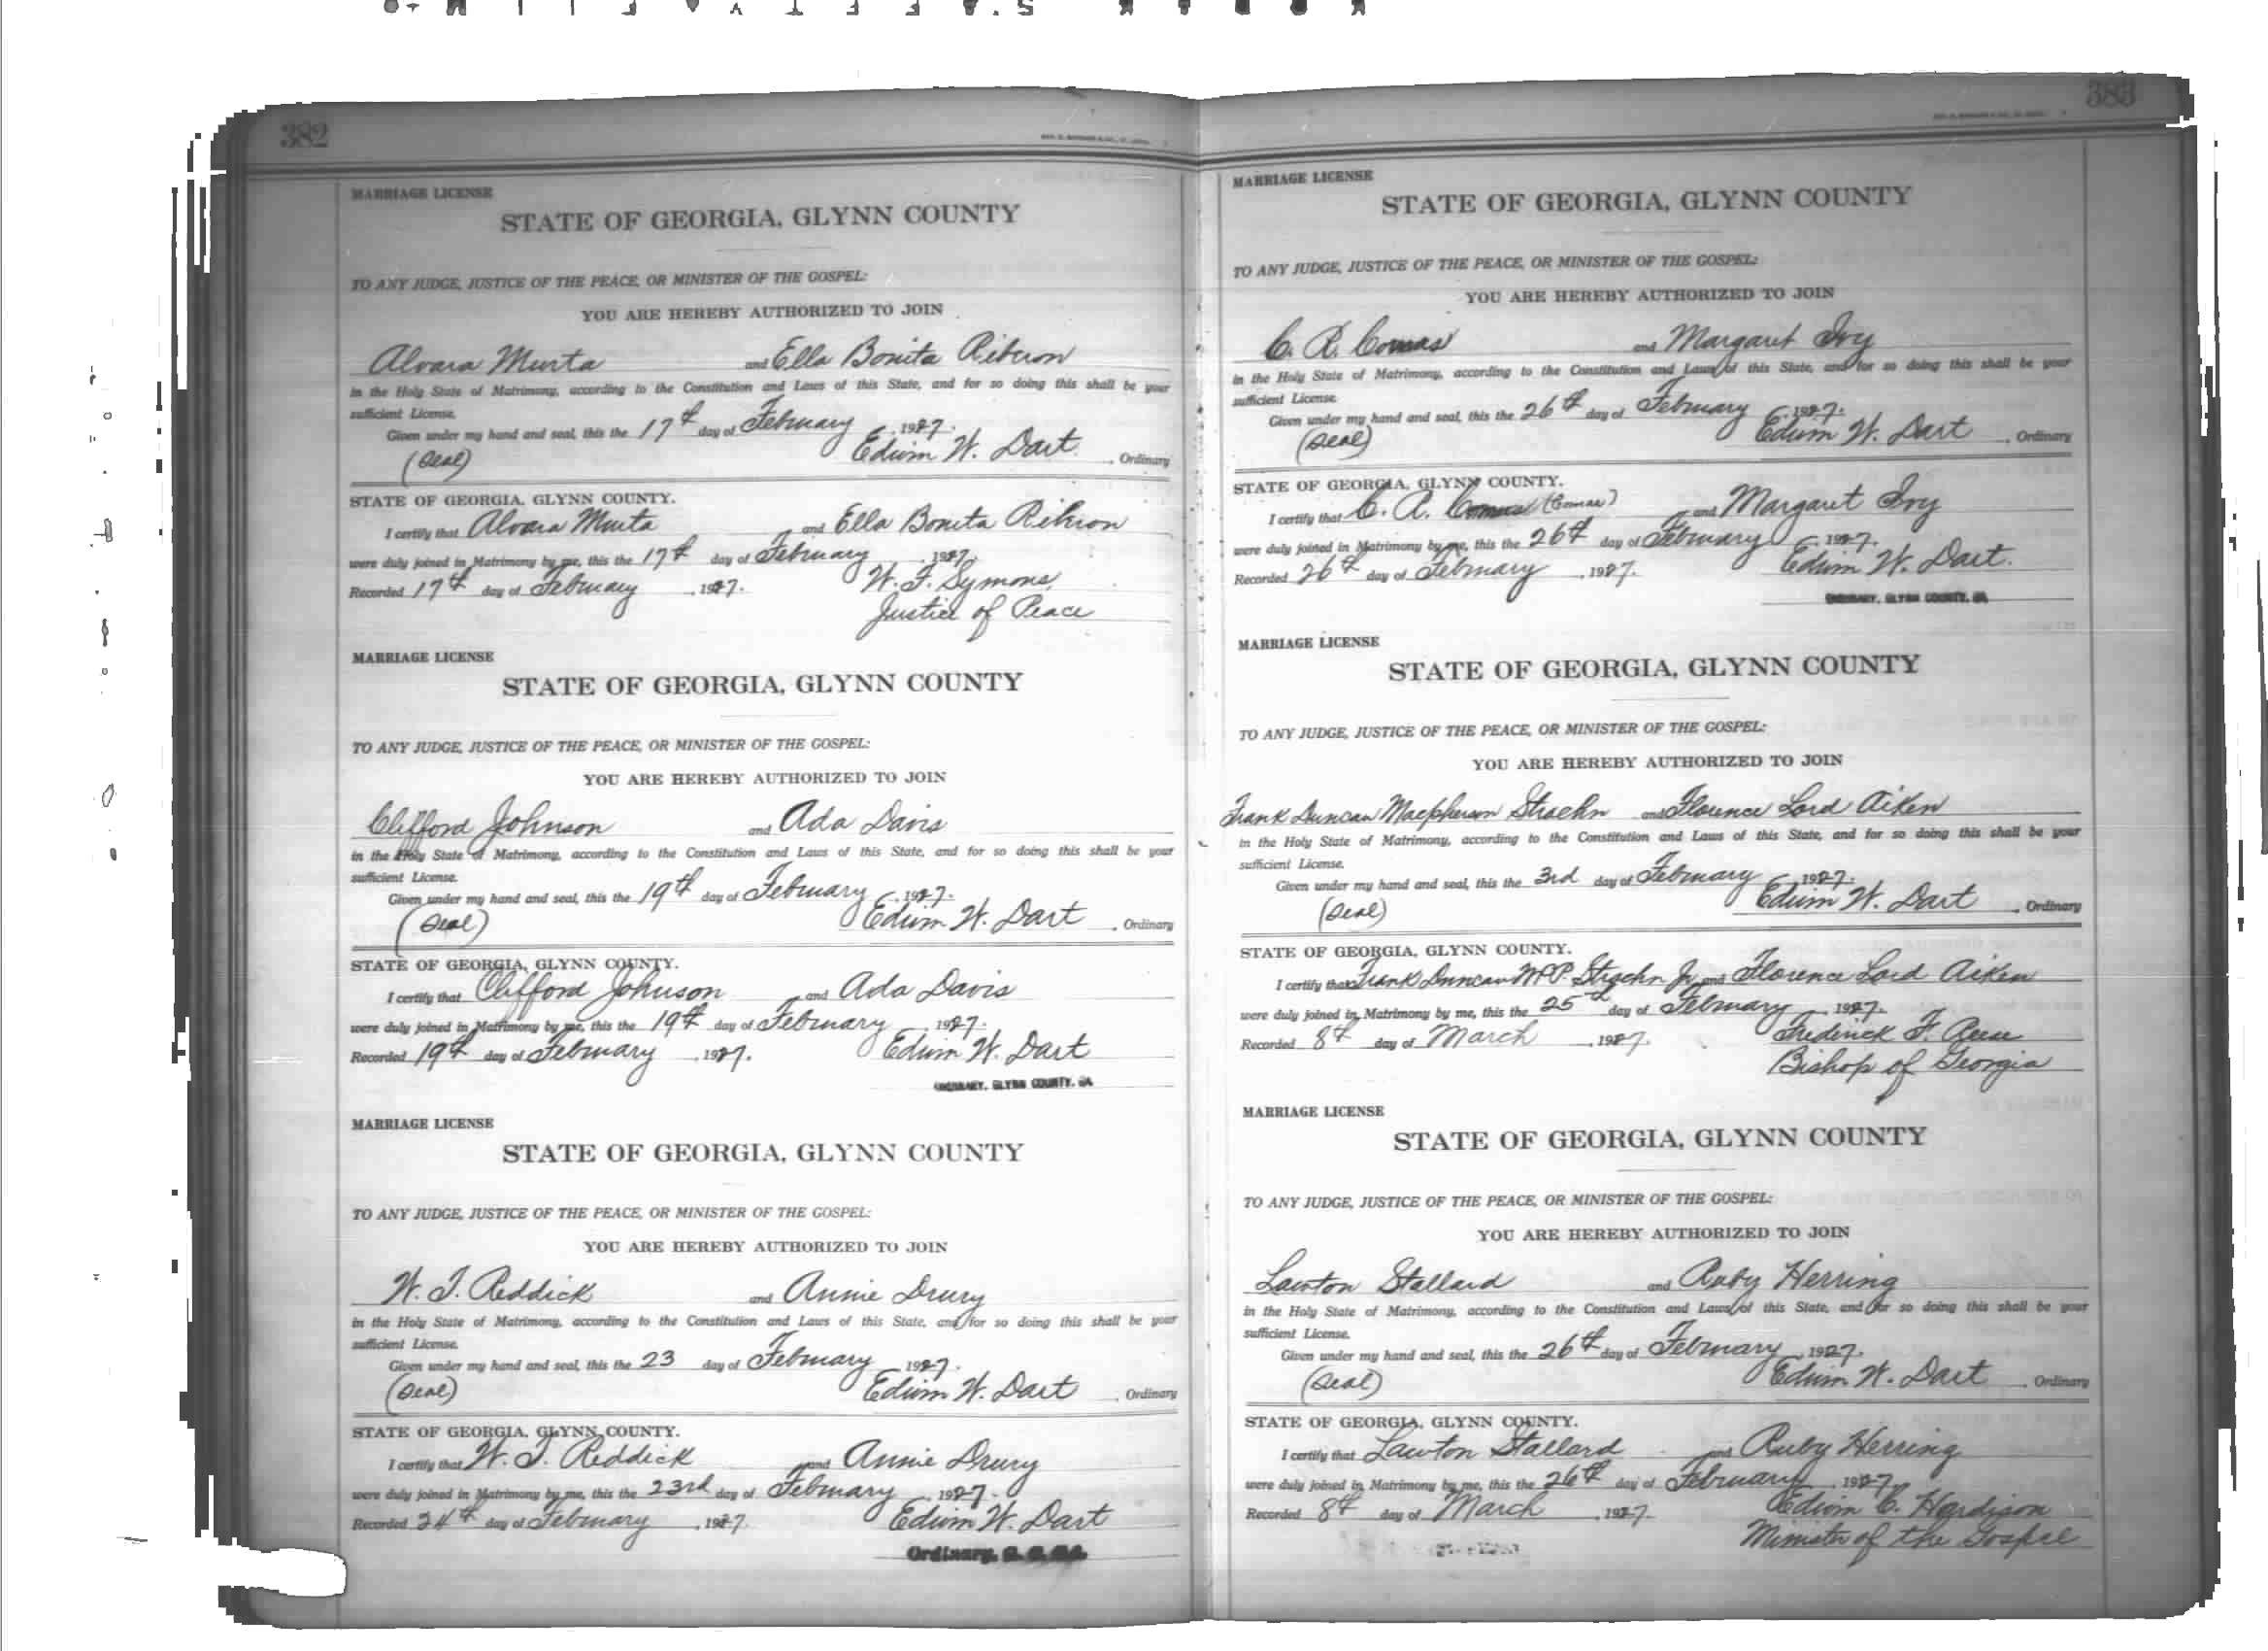 382
MARRIAGE LICENSE
STATE OF GEORGIA, GLYNN COUNTY
TO ANY JUDGE, JUSTICE OF THE PEACE, OR MINISTER OF THE GOSPEL:
YOU ARE HEREBY AUTHORIZED TO JOIN
Alvara Murta and Ella Bonita Riberon
in the Holy State of Matrimony, according to the Constitution and Laws of this State, and for so doing this shall be your
sufficient License.
Given under my hand and seal, this the 17th day of February, 1927.
(Seal) Edwin W. Dart, Ordinary
STATE OF GEORGIA, GLYNN COUNTY.
I certify that Alvara Murta and Ella Bonita Riberon
were duly joined in Matrimony by me, this the 17th day of February, 1927.
Recorded 17th day of February, 1927. W. F. Symons,
Justice of Peace
MARRIAGE LICENSE
STATE OF GEORGIA, GLYNN COUNTY
TO ANY JUDGE, JUSTICE OF THE PEACE, OR MINISTER OF THE GOSPEL:
YOU ARE HEREBY AUTHORIZED TO JOIN
Clifford Johnson and Ada Davis
in the Holy State of Matrimony, according to the Constitution and Laws of this State, and for so doing this shall be your
sufficient License.
Given under my hand and seal, this the 19th day of February, 1927.
(Seal) Edwin W. Dart, Ordinary
STATE OF GEORGIA, GLYNN COUNTY.
I certify that Clifford Johnson and Ada Davis
were duly joined in Matrimony by me, this the 19th day of February, 1927.
Recorded 19th day of February, 1927. Edwin W. Dart
ORDINARY, GLYNN COUNTY, GA
MARRIAGE LICENSE
STATE OF GEORGIA, GLYNN COUNTY
TO ANY JUDGE, JUSTICE OF THE PEACE, OR MINISTER OF THE GOSPEL:
YOU ARE HEREBY AUTHORIZED TO JOIN
W. J. Reddick and Annie Drury
in the Holy State of Matrimony, according to the Constitution and Laws of this State, and for so doing this shall be your
sufficient License.
Given under my hand and seal, this the 23 day of February, 1927.
(Seal) Edwin W. Dart, Ordinary
STATE OF GEORGIA, GLYNN COUNTY.
I certify that W. J. Reddick and Annie Drury
were duly joined in Matrimony by me, this the 23rd day of February, 1927.
Recorded 24th day of February, 1927. Edwin W. Dart
Ordinary, G. C. Ga.
383
MARRIAGE LICENSE
STATE OF GEORGIA, GLYNN COUNTY
TO ANY JUDGE, JUSTICE OF THE PEACE, OR MINISTER OF THE GOSPEL:
YOU ARE HEREBY AUTHORIZED TO JOIN
C. R. Comas and Margaret Ivy
in the Holy State of Matrimony, according to the Constitution and Laws of this State, and for so doing this shall be your
sufficient License.
Given under my hand and seal, this the 26th day of February, 1927.
(Seal) Edwin W. Dart, Ordinary
STATE OF GEORGIA, GLYNN COUNTY.
I certify that C. R. Comas (Comas) and Margaret Ivy
were duly joined in Matrimony by me, this the 26th day of February, 1927.
Recorded 26th day of February, 1927. Edwin W. Dart.
ORDINARY, GLYNN COUNTY, GA
MARRIAGE LICENSE
STATE OF GEORGIA, GLYNN COUNTY
TO ANY JUDGE, JUSTICE OF THE PEACE, OR MINISTER OF THE GOSPEL:
YOU ARE HEREBY AUTHORIZED TO JOIN
Frank Duncan Macpherson Strachn and Florence Lord Aiken
in the Holy State of Matrimony, according to the Constitution and Laws of this State, and for so doing this shall be your
sufficient License.
Given under my hand and seal, this the 3rd day of February, 1927.
(Seal) Edwin W. Dart, Ordinary
STATE OF GEORGIA, GLYNN COUNTY.
I certify that Frank Duncan Strachn Jr. and Florence Lord Aiken
were duly joined in Matrimony by me, this the 25th day of February, 1927.
Recorded 8th day of March, 1927. Frederick F. Reese
Bishop of Georgia
MARRIAGE LICENSE
STATE OF GEORGIA, GLYNN COUNTY
TO ANY JUDGE, JUSTICE OF THE PEACE, OR MINISTER OF THE GOSPEL:
YOU ARE HEREBY AUTHORIZED TO JOIN
Lawton Stallard and Ruby Herring
in the Holy State of Matrimony, according to the Constitution and Laws of this State, and for so doing this shall be your
sufficient License.
Given under my hand and seal, this the 26th day of February, 1927.
(Seal) Edwin W. Dart, Ordinary
STATE OF GEORGIA, GLYNN COUNTY.
I certify that Lawton Stallard and Ruby Herring
were duly joined in Matrimony by me, this the 26th day of February, 1927
Recorded 8th day of March, 1927 Edwin C. Hardison
Minister of the Gospel